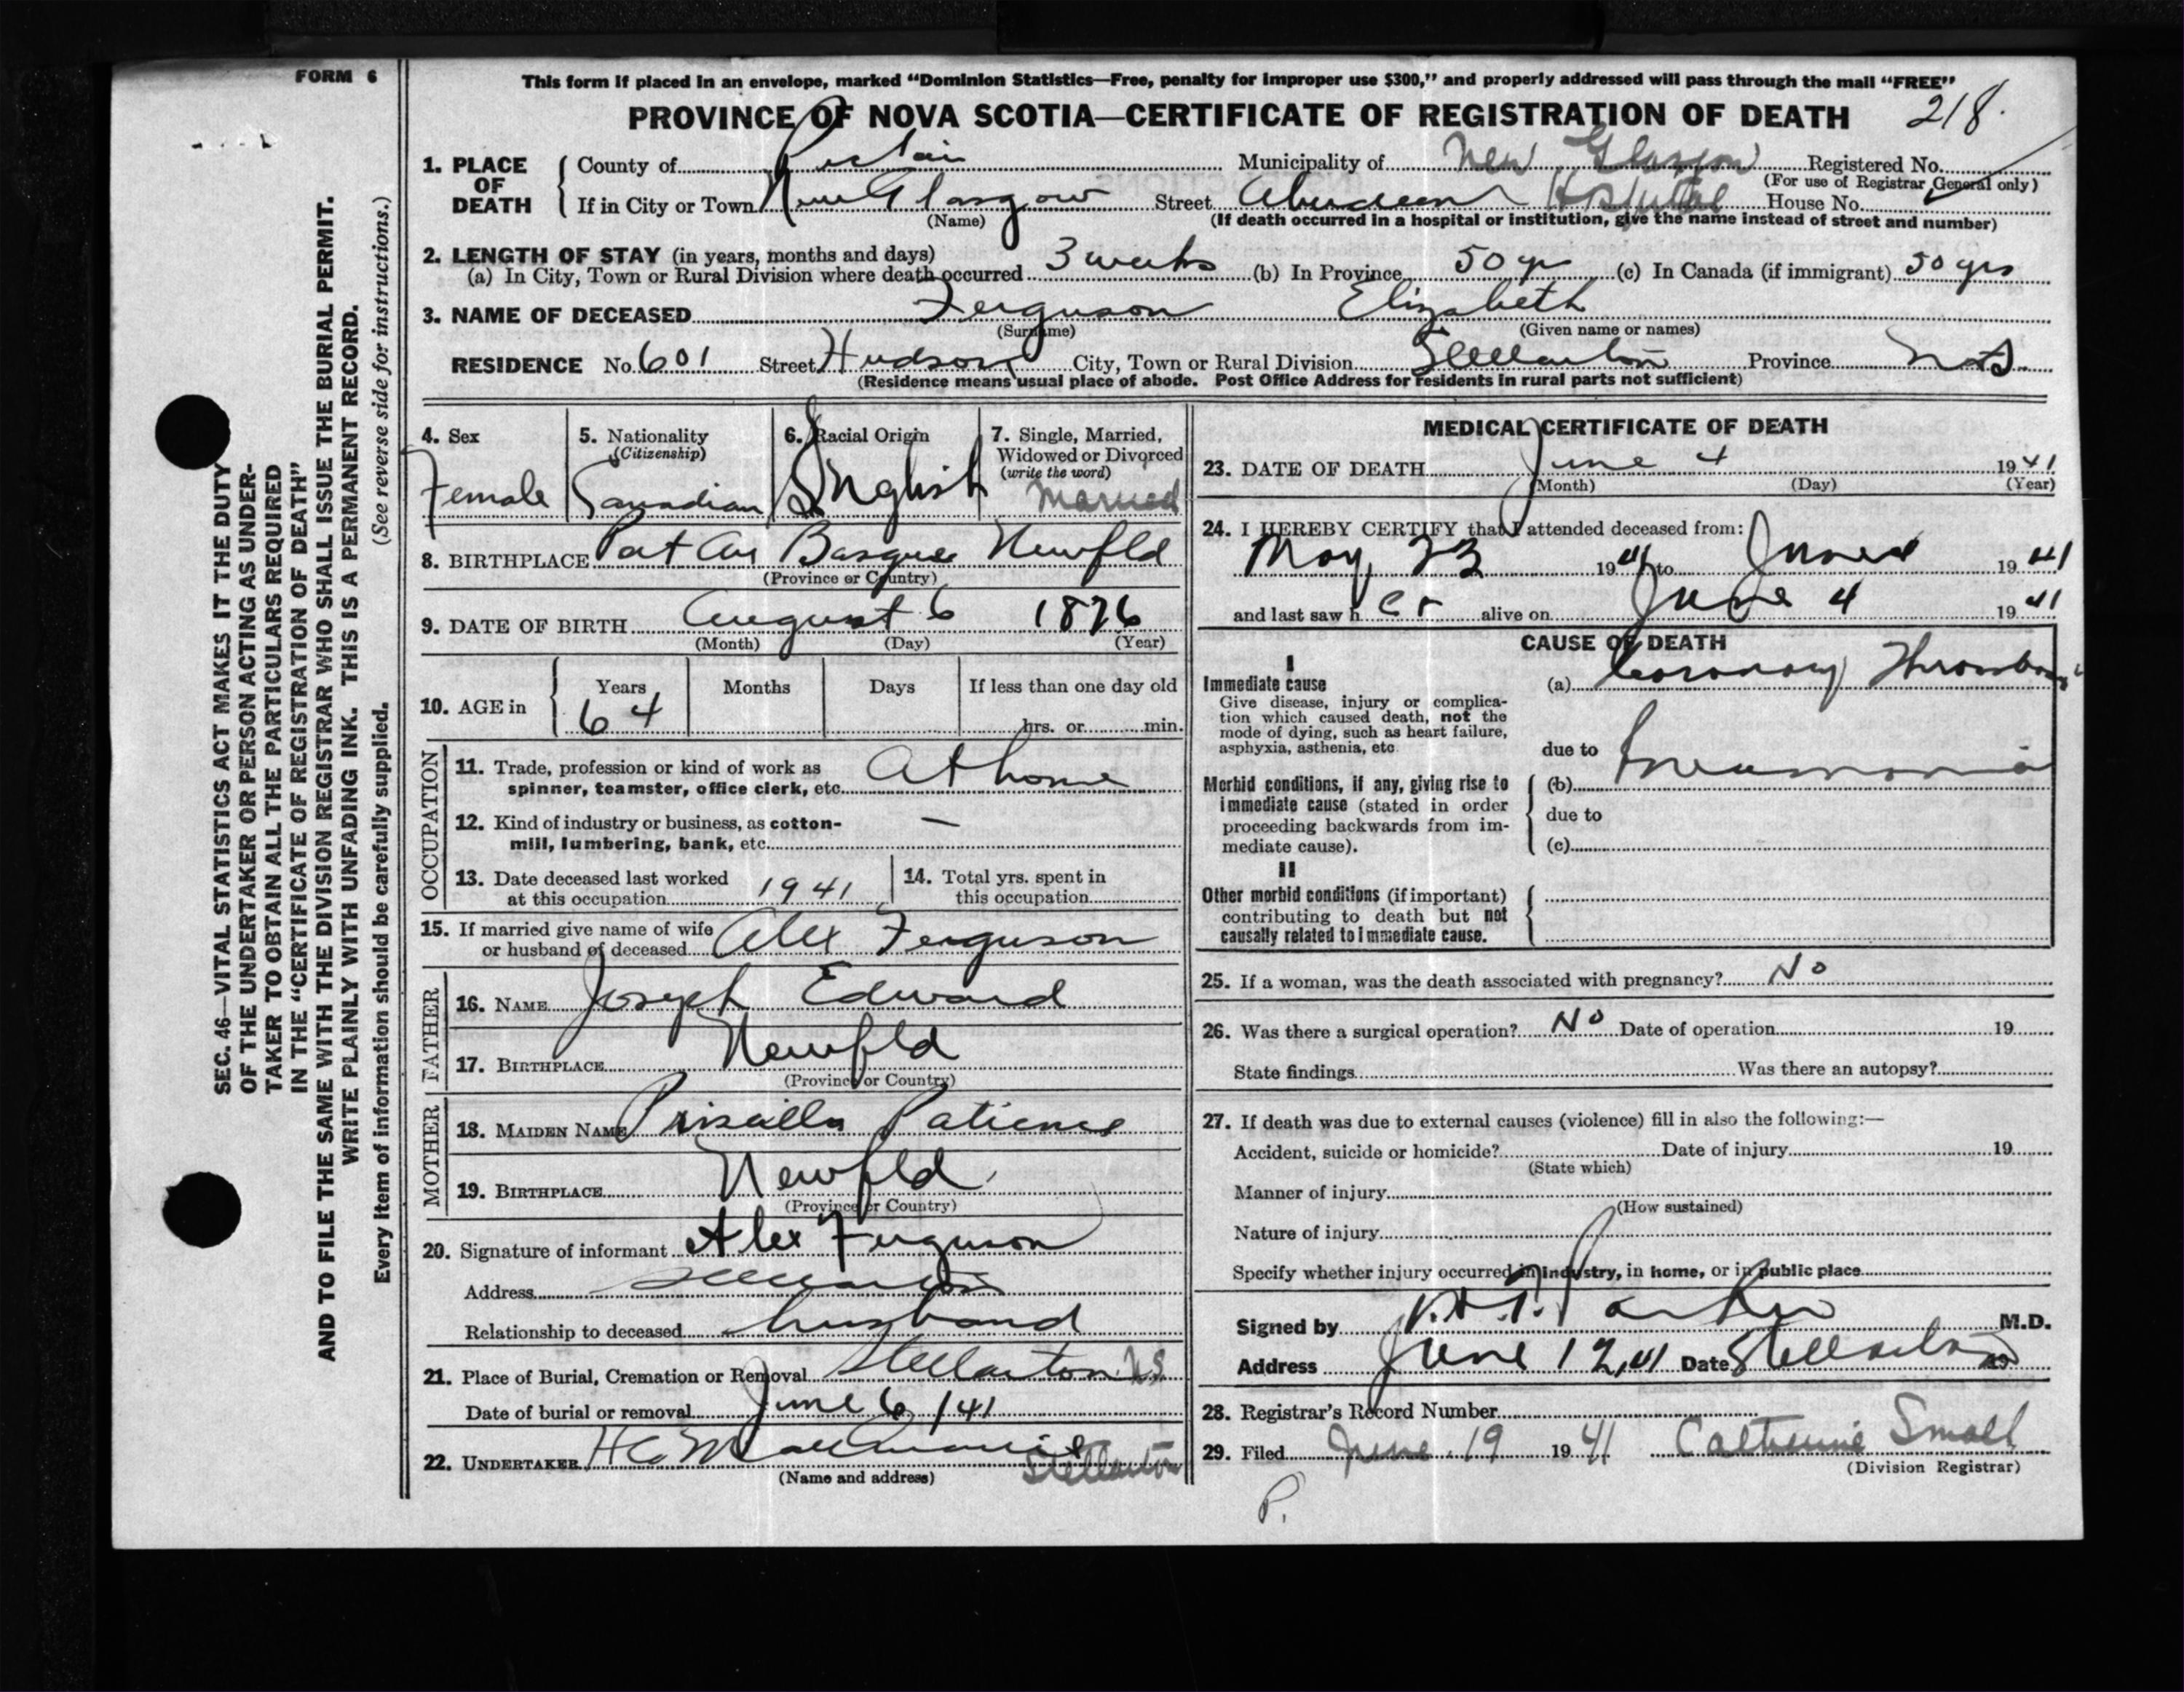 FORM 6
This form if placed in an envelope, marked “Dominion Statistics—Free, penalty for improper use $300,” and properly addressed will pass through the mail “FREE”
PROVINCE OF NOVA SCOTIA—CERTIFICATE OF REGISTRATION OF DEATH 218.
1. PLACE OF DEATH
County of Pictou Municipality of New Glasgow Registered No.
(For use of Registrar General only)
If in City or Town New Glasgow Street Aberdeen Hospital House No.
(Name) (If death occurred in a hospital or institution, give the name instead of street and number)
2. LENGTH OF STAY (in years, months and days)
(a) In City, Town or Rural Division where death occurred 3 weeks (b) In Province 50 yr (c) In Canada (if immigrant) 50 yrs
3. NAME OF DECEASED Ferguson Elizabeth
(Surname) (Given name or names)
RESIDENCE No. 601 Street Hudson City, Town or Rural Division Stellarton Province N.S.
(Residence means usual place of abode. Post Office Address for residents in rural parts not sufficient)
4. Sex Female
5. Nationality (Citizenship) Canadian
6. Racial Origin English
7. Single, Married, Widowed or Divorced (write the word) Married
8. BIRTHPLACE Port Au Basque Newfld
(Province or Country)
9. DATE OF BIRTH August 6 1876
(Month) (Day) (Year)
10. AGE in Years 64 Months Days If less than one day old
hrs. or min.
OCCUPATION
11. Trade, profession or kind of work as spinner, teamster, office clerk, etc. At home
12. Kind of industry or business, as cotton-mill, lumbering, bank, etc. —
13. Date deceased last worked at this occupation 1941
14. Total yrs. spent in this occupation
15. If married give name of wife or husband of deceased Alex Ferguson
FATHER
16. NAME Joseph Edward
17. BIRTHPLACE Newfld
(Province or Country)
MOTHER
18. MAIDEN NAME Priscilla Patience
19. BIRTHPLACE Newfld
(Province or Country)
20. Signature of informant Alex Ferguson
Address Stellarton
Relationship to deceased husband
21. Place of Burial, Cremation or Removal Stellarton N.S.
Date of burial or removal June 6/41
22. UNDERTAKER Stellarton
(Name and address)
MEDICAL CERTIFICATE OF DEATH
23. DATE OF DEATH June 4 1941
(Month) (Day) (Year)
24. I HEREBY CERTIFY that I attended deceased from:
May 23 1941 to June 4 1941
and last saw her alive on June 4 1941
CAUSE OF DEATH
I
Immediate cause
Give disease, injury or complication which caused death, not the mode of dying, such as heart failure, asphyxia, asthenia, etc.
(a) Coronary Thrombosis
due to
Morbid conditions, if any, giving rise to immediate cause (stated in order proceeding backwards from immediate cause).
(b) Pneumonia
due to
(c)
II
Other morbid conditions (if important) contributing to death but not causally related to immediate cause.
25. If a woman, was the death associated with pregnancy? No
26. Was there a surgical operation? No Date of operation 19
State findings Was there an autopsy?
27. If death was due to external causes (violence) fill in also the following:—
Accident, suicide or homicide? Date of injury 19
(State which)
Manner of injury
(How sustained)
Nature of injury
Specify whether injury occurred in industry, in home, or in public place
Signed by Parker M.D.
Address June 12, 41 Date Stellarton 19
28. Registrar's Record Number
29. Filed June 19 1941 Catherine Small
(Division Registrar)
P.
SEC. 46—VITAL STATISTICS ACT MAKES IT THE DUTY
OF THE UNDERTAKER OR PERSON ACTING AS UNDER-
TAKER TO OBTAIN ALL THE PARTICULARS REQUIRED
IN THE “CERTIFICATE OF REGISTRATION OF DEATH”
AND TO FILE THE SAME WITH THE DIVISION REGISTRAR WHO SHALL ISSUE THE BURIAL PERMIT.
WRITE PLAINLY WITH UNFADING INK. THIS IS A PERMANENT RECORD.
Every item of information should be carefully supplied. (See reverse side for instructions.)